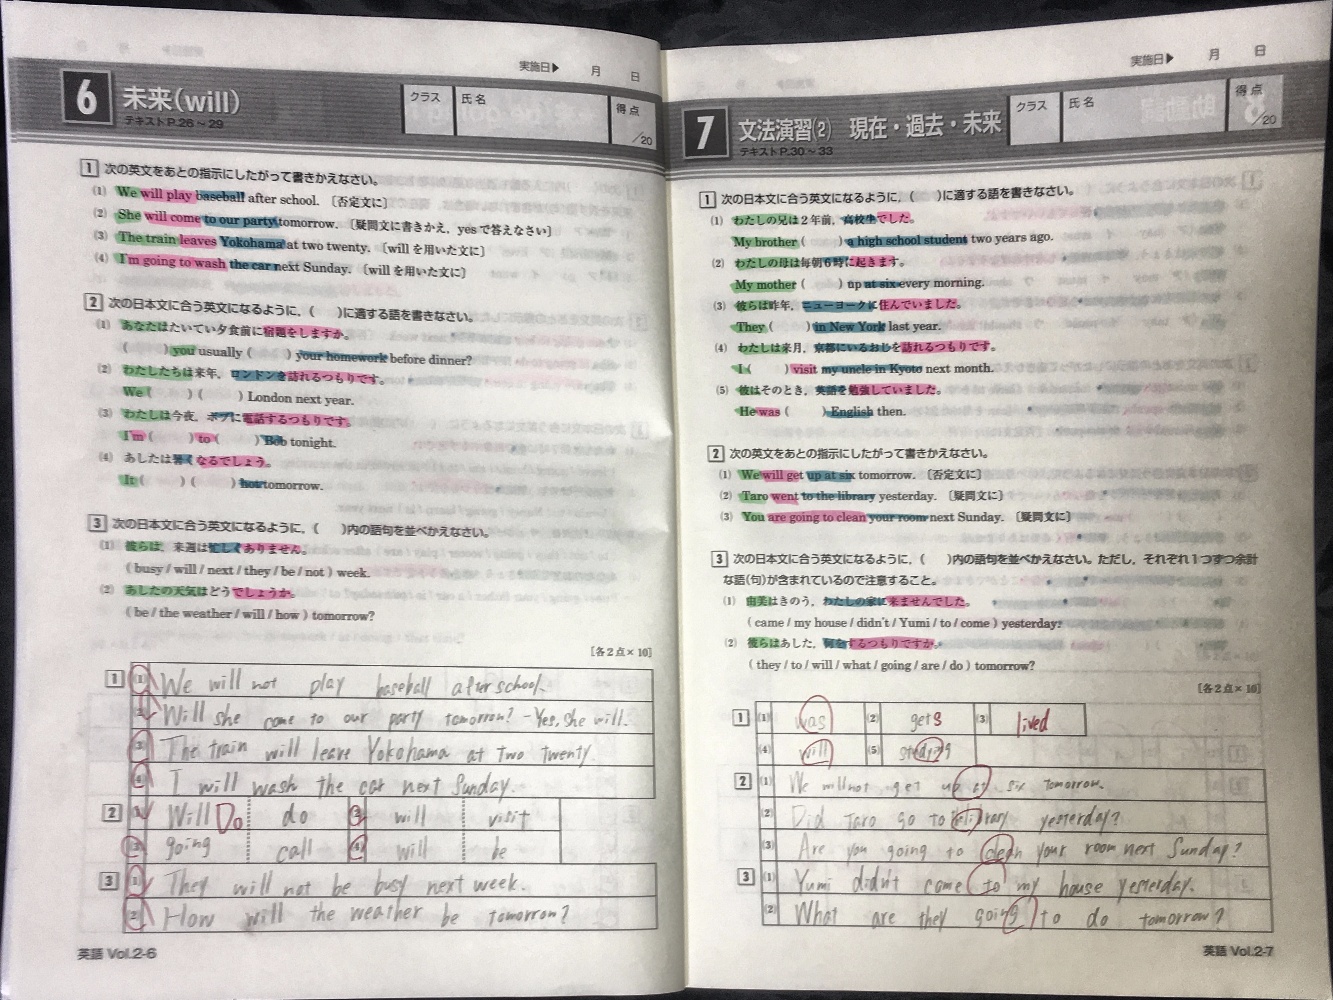 実施日▶ 月 日
6 未来(will)
テキストP.26～29
クラス 氏名 得点 /20
1 次の英文をあとの指示にしたがって書きかえなさい。
(1) We will play baseball after school. 〔否定文に〕
(2) She will come to our party tomorrow. 〔疑問文に書きかえ，yesで答えなさい〕
(3) The train leaves Yokohama at two twenty. 〔willを用いた文に〕
(4) I'm going to wash the car next Sunday. 〔willを用いた文に〕
2 次の日本文に合う英文になるように，( )に適する語を書きなさい。
(1) あなたはたいてい夕食前に宿題をしますか。
( ) you usually ( ) your homework before dinner?
(2) わたしたちは来年，ロンドンを訪れるつもりです。
We ( ) ( ) London next year.
(3) わたしは今夜，ボブに電話するつもりです。
I'm ( ) to ( ) Bob tonight.
(4) あしたは暑くなるでしょう。
It ( ) ( ) hot tomorrow.
3 次の日本文に合う英文になるように，( )内の語句を並べかえなさい。
(1) 彼らは，来週は忙しくありません。
( busy / will / next / they / be / not ) week.
(2) あしたの天気はどうでしょうか。
( be / the weather / will / how ) tomorrow?
[各2点×10]
1 (1) We will not play baseball after school.
(2) Will she come to our party tomorrow? - Yes, she will.
(3) The train will leave Yokohama at two twenty.
(4) I will wash the car next Sunday.
2 (1) Will Do do (2) will visit
(3) going call (4) will be
3 (1) They will not be busy next week.
(2) How will the weather be tomorrow?
英語 Vol.2-6
実施日▶ 月 日
7 文法演習(2) 現在・過去・未来
テキストP.30～33
クラス 氏名 得点 /20
1 次の日本文に合う英文になるように，( )に適する語を書きなさい。
(1) わたしの兄は2年前，高校生でした。
My brother ( ) a high school student two years ago.
(2) わたしの母は毎朝6時に起きます。
My mother ( ) up at six every morning.
(3) 彼らは昨年，ニューヨークに住んでいました。
They ( ) in New York last year.
(4) わたしは来月，京都にいるおじを訪れるつもりです。
I ( ) visit my uncle in Kyoto next month.
(5) 彼はそのとき，英語を勉強していました。
He was ( ) English then.
2 次の英文をあとの指示にしたがって書きかえなさい。
(1) We will get up at six tomorrow. 〔否定文に〕
(2) Taro went to the library yesterday. 〔疑問文に〕
(3) You are going to clean your room next Sunday. 〔疑問文に〕
3 次の日本文に合う英文になるように，( )内の語句を並べかえなさい。ただし，それぞれ1つずつ余計
な語(句)が含まれているので注意すること。
(1) 由美はきのう，わたしの家に来ませんでした。
( came / my house / didn't / Yumi / to / come ) yesterday.
(2) 彼らはあした，何をするつもりですか。
( they / to / will / what / going / are / do ) tomorrow?
[各2点×10]
1 (1) was (2) gets (3) lived
(4) will (5)
2 (1) We will not get up at six tomorrow.
(2) Did Taro go to yesterday?
(3) Are you going to clean your room next Sunday?
3 (1) Yumi didn't come to my house yesterday.
(2) What are they going to do tomorrow?
英語 Vol.2-7